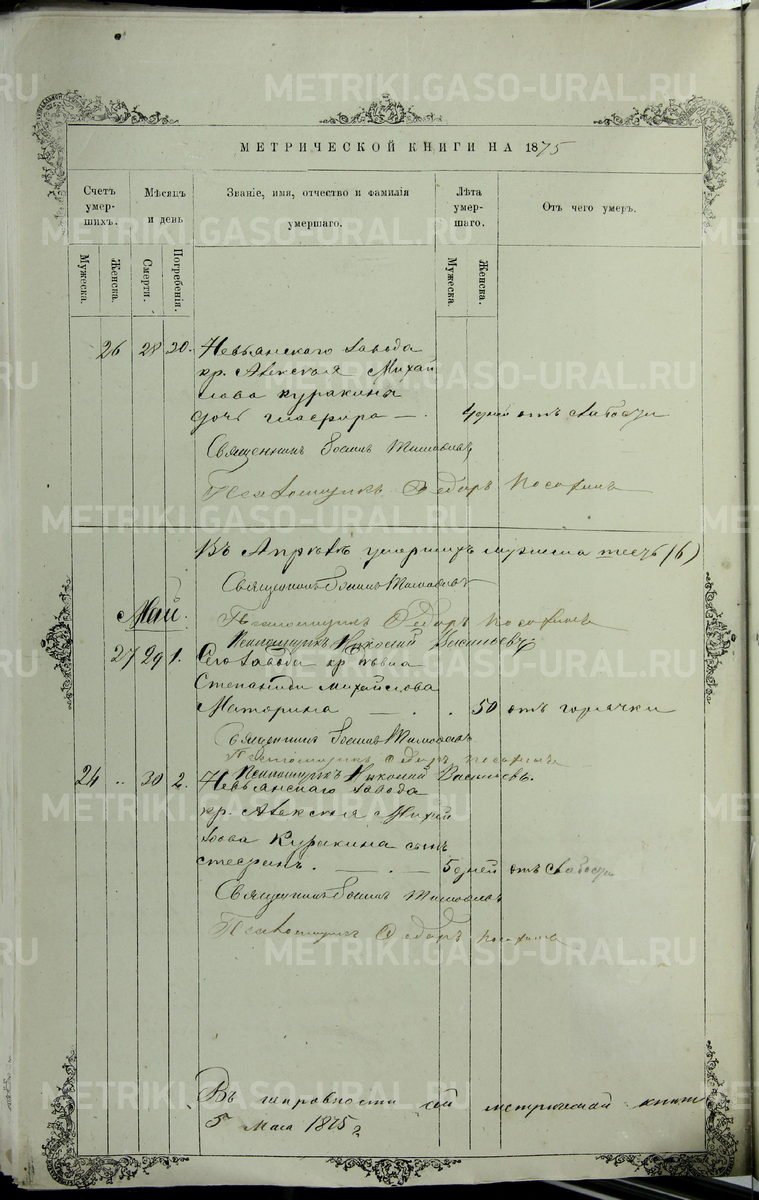 METRIKI.GASO-URAL.RU
МЕТРИЧЕСКОЙ КНИГИ НА 1875
Счетъ умер-шихъ.
Мѣсяцъ и день
Званіе, имя, отчество и фамилія умершаго.
Лѣта умер-шаго.
Отъ чего умеръ.
Мужеска.
Женска.
Смерти.
Погребенія.
Мужеска.
Женска.
26 28 30. Невьянскаго завода
кр. Алексѣя Михай
лова Куракина
дочь Глафира — . 4 дней отъ слабости
Священникъ Іоаннъ
Псаломщикъ Федоръ
Въ Апрѣлѣ умершихъ мужеска шесть (6)
Священникъ Іоаннъ
Май.
Псаломщикъ Федоръ
Псаломщикъ Николай Васильевъ
27 29 1. Сего завода кр. вдова
Степанида Михайлова
Маторина — . . 50 отъ горячки
Священникъ Іоаннъ
Псаломщикъ Федоръ
Псаломщикъ Николай Васильевъ.
24 .. 30 2. Невьянскаго завода
кр. Алексѣя Михай
лова Куракина сынъ
Стефанъ. — . — 5 дней отъ слабости
Священникъ Іоаннъ
Псаломщикъ Федоръ
Въ исправности сей метрической книги
5 Мая 1875 г